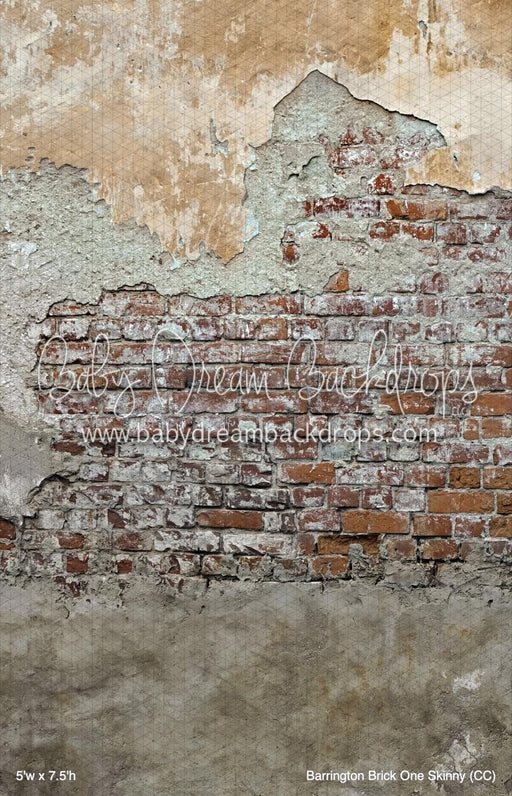 Baby Dream Backdrops
www.babydreambackdrops.com
5'w x 7.5'h
Barrington Brick One Skinny (CC)